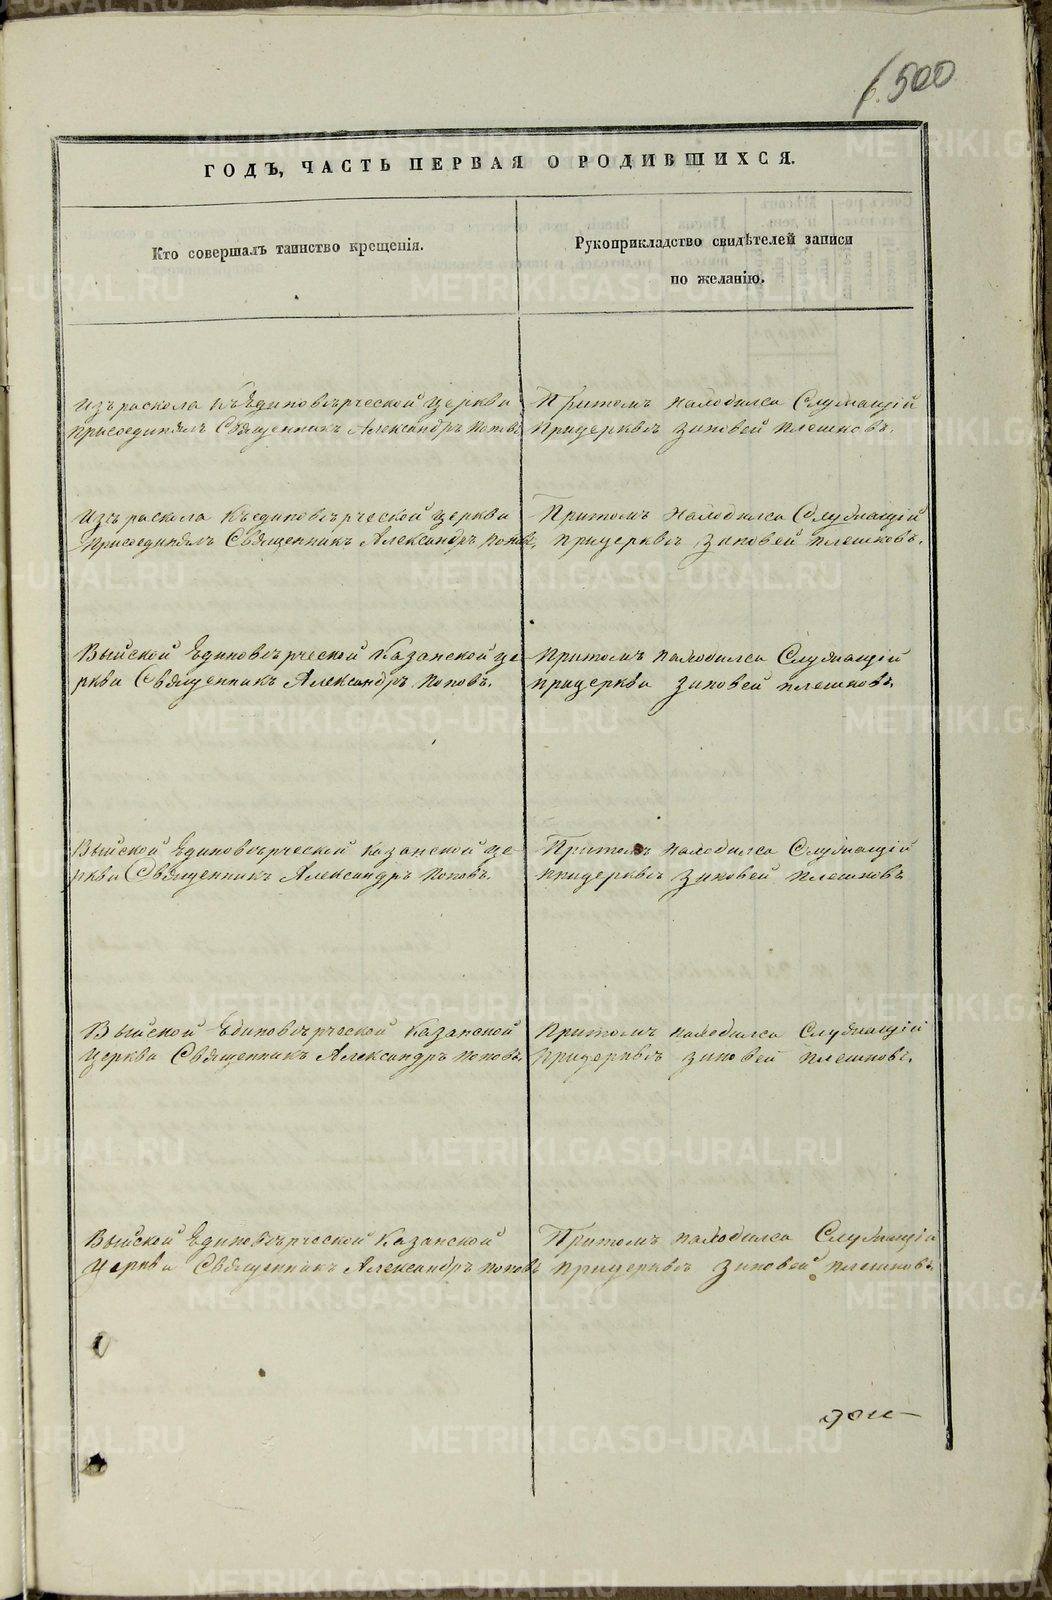 500
ГОДЪ, ЧАСТЬ ПЕРВАЯ О РОДИВШИХСЯ.
Кто совершалъ таинство крещенія.
Рукоприкладство свидѣтелей записи
по желанію.
Изъ раскола къ Единовѣрческой церкви
Присоединялъ Священникъ Александръ Поповъ
Притомъ находился Служащій
Прицерквѣ Зиновей Плешковъ.
Изъ раскола Къединовѣрческой церкви
Присоединялъ Священникъ Александръ Поповъ.
Притомъ находился Служащій
прицерквѣ Зиновей Плешковъ.
Выйской Единовѣрческой Казанской це
ркви Священникъ Александръ Поповъ.
Притомъ находился Служащій
прицеркви Зиновей Плешковъ.
Выйской Единовѣрческой Казанской це
ркви Священникъ Александръ Поповъ.
Притомъ находился Служащій
прицерквѣ Зиновей Плешковъ
Выйской Единовѣрческой Казанской
церкви Священникъ Александръ Поповъ.
Притомъ находился Служащій
Прицерквѣ Зиновей Плешковъ.
Выйской Единовѣрческой Казанской
Церкви Священникъ Александръ Поповъ
Притомъ находился Служащій
прицерквѣ Зиновей Плешковъ
METRIKI.GASO-URAL.RU